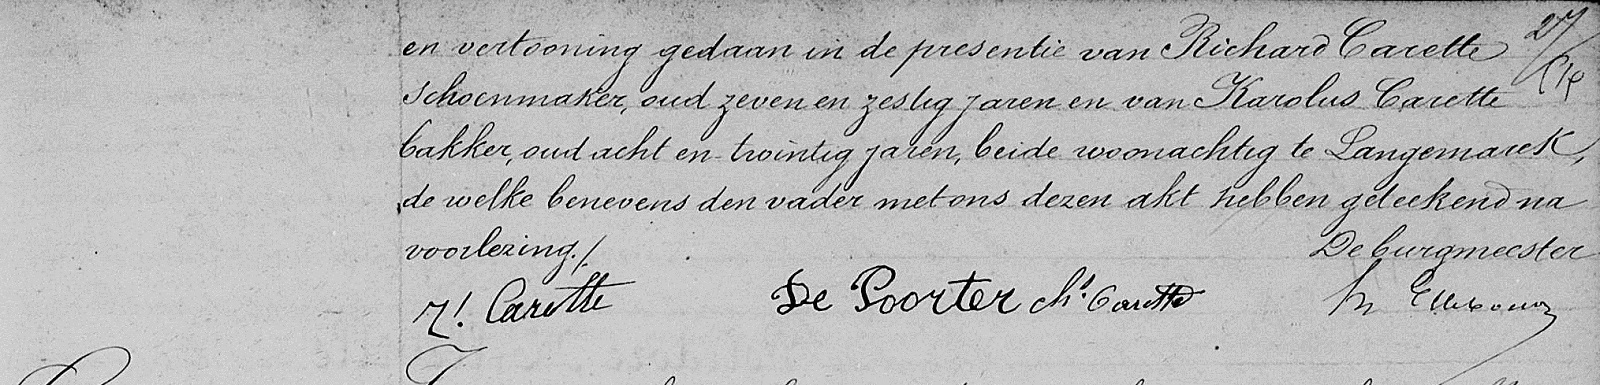 en vertooning gedaan in de presentie van Richard Carette
schoenmaker, oud zeven en zestig jaren en van Karolus Carette
bakker, oud acht en twintig jaren, beide woonachtig te Langemarck,
de welke benevens den vader met ons dezen akt hebben geteekend na
voorlezing./.
De burgmeester
Carette De Poorter Ch. Carette